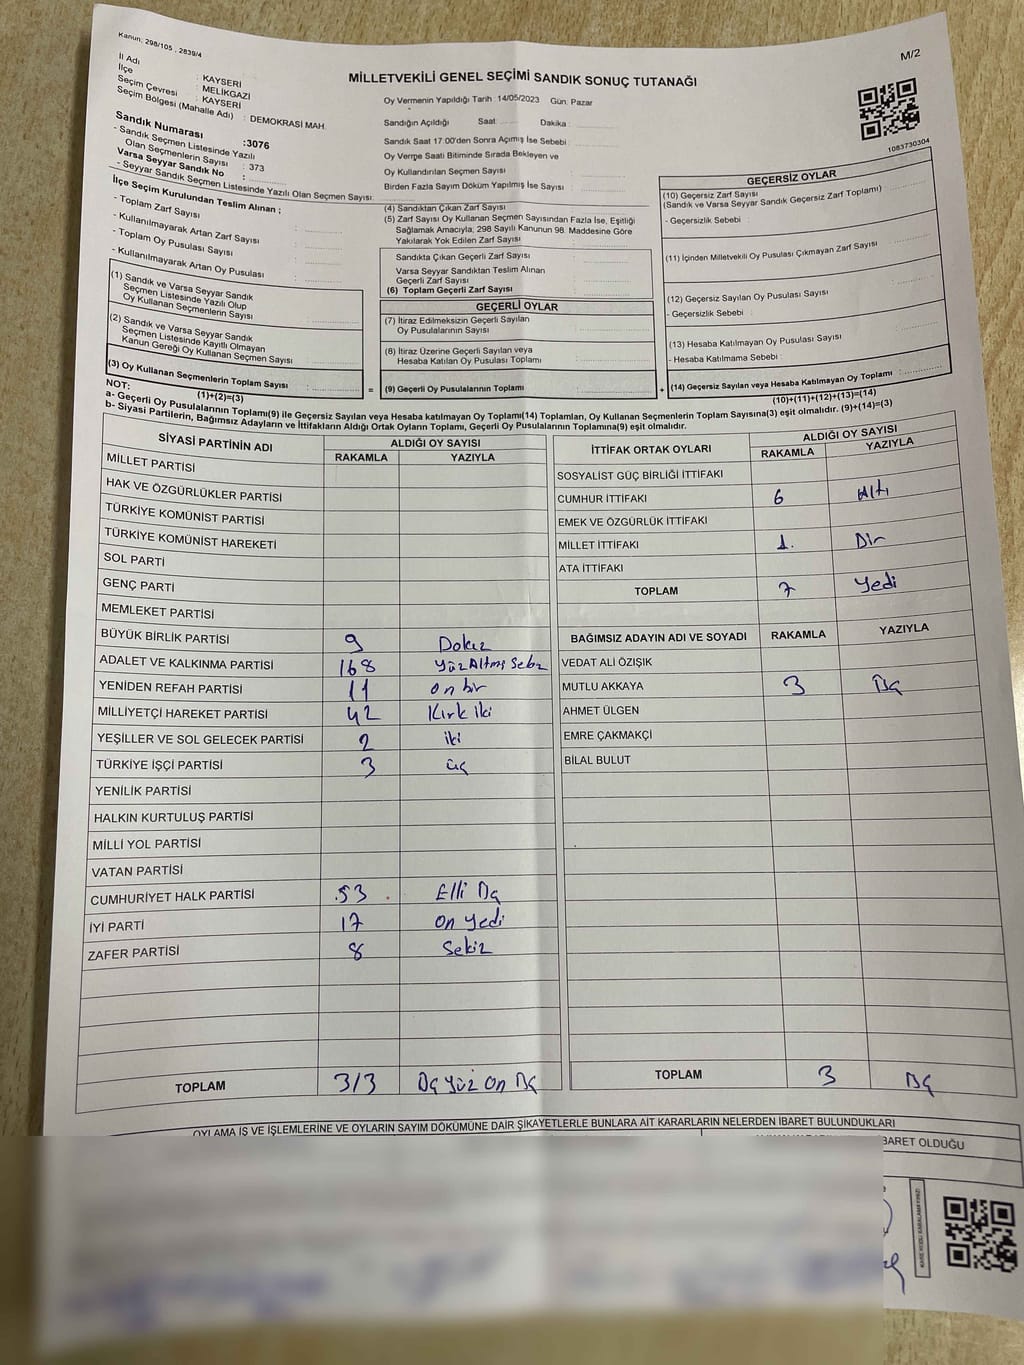 Kanun: 298/105 , 2839/4
M/2
MİLLETVEKİLİ GENEL SEÇİMİ SANDIK SONUÇ TUTANAĞI
İl Adı : KAYSERİ
İlçe : MELİKGAZİ
Seçim Çevresi : KAYSERİ
Seçim Bölgesi (Mahalle Adı) : DEMOKRASİ MAH.
Sandık Numarası :3076
- Sandık Seçmen Listesinde Yazılı
Olan Seçmenlerin Sayısı : 373
Varsa Seyyar Sandık No :
- Seyyar Sandık Seçmen Listesinde Yazılı Olan Seçmen Sayısı:
İlçe Seçim Kurulundan Teslim Alınan ;
- Toplam Zarf Sayısı :
- Kullanılmayarak Artan Zarf Sayısı :
- Toplam Oy Pusulası Sayısı :
- Kullanılmayarak Artan Oy Pusulası :
(1) Sandık ve Varsa Seyyar Sandık
Seçmen Listesinde Yazılı Olup
Oy Kullanan Seçmenlerin Sayısı :
(2) Sandık ve Varsa Seyyar Sandık
Seçmen Listesinde Kayıtlı Olmayan
Kanun Gereği Oy Kullanan Seçmen Sayısı :
(3) Oy Kullanan Seçmenlerin Toplam Sayısı :
(1)+(2)=(3)
Oy Vermenin Yapıldığı Tarih 14/05/2023 Gün: Pazar
Sandığın Açıldığı Saat: Dakika :
Sandık Saat 17:00'den Sonra Açılmış İse Sebebi :
Oy Verme Saati Bitiminde Sırada Bekleyen ve
Oy Kullandırılan Seçmen Sayısı :
Birden Fazla Sayım Döküm Yapılmış İse Sayısı :
(4) Sandıktan Çıkan Zarf Sayısı :
(5) Zarf Sayısı Oy Kullanan Seçmen Sayısından Fazla İse, Eşitliği
Sağlamak Amacıyla, 298 Sayılı Kanunun 98. Maddesine Göre
Yakılarak Yok Edilen Zarf Sayısı :
Sandıkta Çıkan Geçerli Zarf Sayısı :
Varsa Seyyar Sandıktan Teslim Alınan
Geçerli Zarf Sayısı :
(6) Toplam Geçerli Zarf Sayısı :
GEÇERLİ OYLAR
(7) İtiraz Edilmeksizin Geçerli Sayılan
Oy Pusulalarının Sayısı :
(8) İtiraz Üzerine Geçerli Sayılan veya
Hesaba Katılan Oy Pusulası Toplamı :
= (9) Geçerli Oy Pusulalarının Toplamı :
1083730304
GEÇERSİZ OYLAR
(10) Geçersiz Zarf Sayısı
(Sandık ve Varsa Seyyar Sandık Geçersiz Zarf Toplamı) :
- Geçersizlik Sebebi :
(11) İçinden Milletvekili Oy Pusulası Çıkmayan Zarf Sayısı :
(12) Geçersiz Sayılan Oy Pusulası Sayısı :
- Geçersizlik Sebebi :
(13) Hesaba Katılmayan Oy Pusulası Sayısı :
- Hesaba Katılmama Sebebi :
+ (14) Geçersiz Sayılan veya Hesaba Katılmayan Oy Toplamı :
(10)+(11)+(12)+(13)=(14)
NOT:
a- Geçerli Oy Pusulalarının Toplamı(9) ile Geçersiz Sayılan veya Hesaba katılmayan Oy Toplamı(14) Toplamları, Oy Kullanan Seçmenlerin Toplam Sayısına(3) eşit olmalıdır. (9)+(14)=(3)
b- Siyasi Partilerin, Bağımsız Adayların ve İttifakların Aldığı Ortak Oyların Toplamı, Geçerli Oy Pusulalarının Toplamına(9) eşit olmalıdır.
SİYASİ PARTİNİN ADI ALDIĞI OY SAYISI
RAKAMLA YAZIYLA
MİLLET PARTİSİ
HAK VE ÖZGÜRLÜKLER PARTİSİ
TÜRKİYE KOMÜNİST PARTİSİ
TÜRKİYE KOMÜNİST HAREKETİ
SOL PARTİ
GENÇ PARTİ
MEMLEKET PARTİSİ
BÜYÜK BİRLİK PARTİSİ 9 Dokuz
ADALET VE KALKINMA PARTİSİ 168 YüzAltmış Sekiz
YENİDEN REFAH PARTİSİ 11 on bir
MİLLİYETÇİ HAREKET PARTİSİ 42 Kırk iki
YEŞİLLER VE SOL GELECEK PARTİSİ 2 iki
TÜRKİYE İŞÇİ PARTİSİ 3 üç
YENİLİK PARTİSİ
HALKIN KURTULUŞ PARTİSİ
MİLLİ YOL PARTİSİ
VATAN PARTİSİ
CUMHURİYET HALK PARTİSİ 53 Elli Üç
İYİ PARTİ 17 on yedi
ZAFER PARTİSİ 8 Sekiz
TOPLAM 313 Üç yüz on Üç
İTTİFAK ORTAK OYLARI ALDIĞI OY SAYISI
RAKAMLA YAZIYLA
SOSYALİST GÜÇ BİRLİĞİ İTTİFAKI
CUMHUR İTTİFAKI 6 Altı
EMEK VE ÖZGÜRLÜK İTTİFAKI
MİLLET İTTİFAKI 1 Bir
ATA İTTİFAKI
TOPLAM 7 Yedi
BAĞIMSIZ ADAYIN ADI VE SOYADI RAKAMLA YAZIYLA
VEDAT ALİ ÖZIŞIK
MUTLU AKKAYA 3 Üç
AHMET ÜLGEN
EMRE ÇAKMAKÇİ
BİLAL BULUT
TOPLAM 3 Üç
OYLAMA İŞ VE İŞLEMLERİNE VE OYLARIN SAYIM DÖKÜMÜNE DAİR ŞİKAYETLERLE BUNLARA AİT KARARLARIN NELERDEN İBARET BULUNDUKLARI
İBARET OLDUĞU
KARE KODU KARALAMAYINIZ!